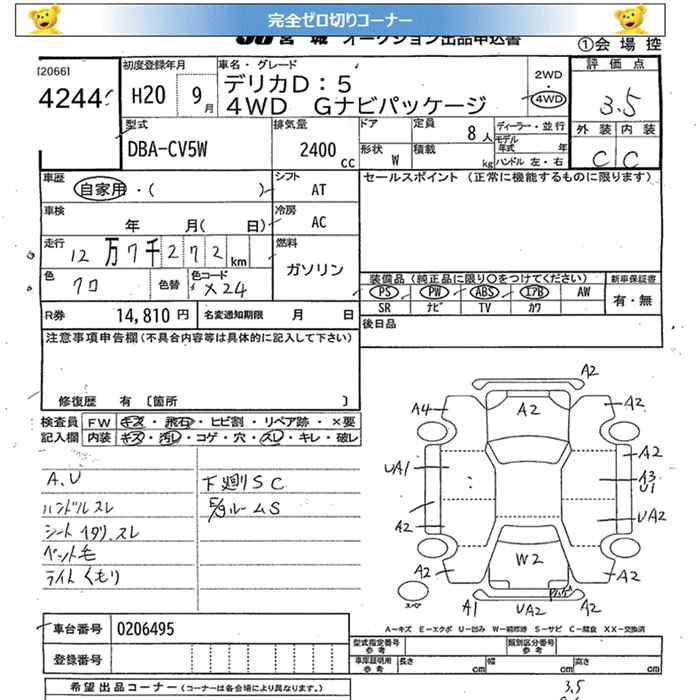 完全ゼロ切りコーナー
JU 宮城 オークション出品申込書
①会場控
[2066]
4244
初度登録年月
H20 9月
車名・グレード
デリカD：5
4WD Gナビパッケージ
2WD・4WD
評価点
3.5
外装 内装
C C
型式
DBA-CV5W
排気量
2400 cc
ドア
形状 W
定員 8人
積載 kg
ディーラー・並行
モデル年式 年
ハンドル 左・右
車歴 自家用・( )
シフト AT
セールスポイント（正常に機能するものに限ります）
車検 年 月( 日)
冷房 AC
走行 12万7千272km
燃料 ガソリン
色 クロ 色替 色コード X24
装備品（純正品に限り○をつけてください）
新車保証書
PS PW ABS エアB AW
有・無
SR ナビ TV カワ
R券 14,810円 名変通知期限 月 日
後日品
注意事項申告欄(不具合内容等は具体的に記入して下さい)
修復歴 有〔箇所 〕
検査員記入欄
FW キズ・飛石・ヒビ割・リペア跡・×要
内装 キズ・汚れ・コゲ・穴・スレ・キレ・破レ
A,U
下廻りSC
ハンドルスレ
E/gルームS
シートヘタリ、スレ
ペット毛
ライトくもり
A2
A4 A2 A2
A2
UA1 A3
U1
UA2
A2
W2
A2 A2
スペア A1 UA2 A2
A－キズ E－エクボ U－凹み W－補修跡 S－サビ C－腐食 XX－交換済
車台番号 0206495
登録番号
型式指定番号 参考
類別区分番号 参考
車庫証明用 参考 長さ cm 幅 cm 高さ cm
希望出品コーナー（コーナーは各会場により異なります。）
3.5